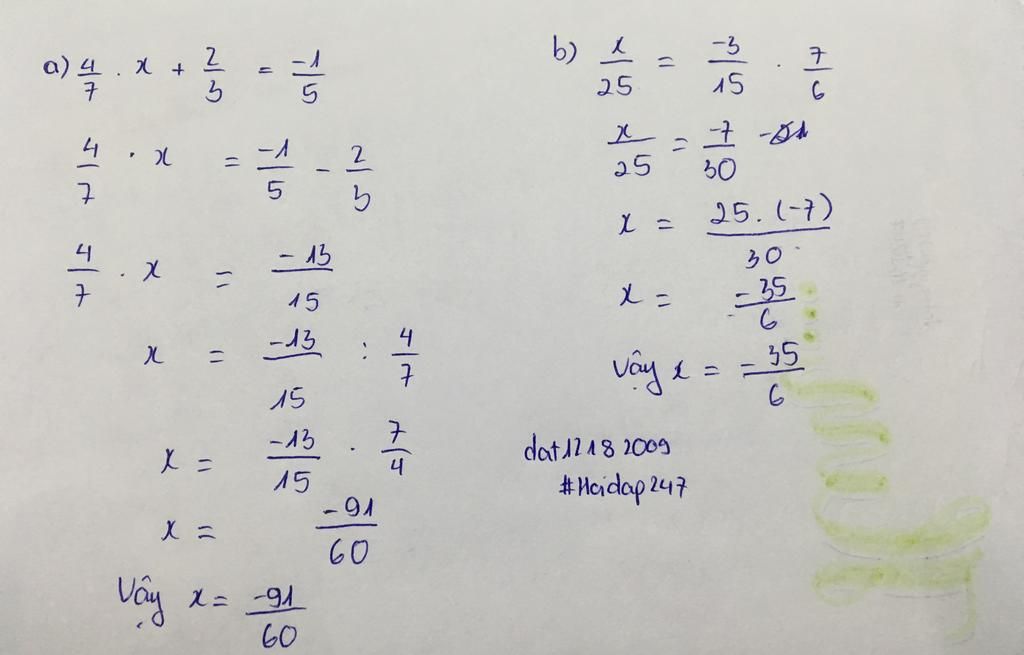 a) 4/7 . x + 2/3 = -1/5
4/7 . x = -1/5 - 2/3
4/7 . x = -13/15
x = -13/15 : 4/7
x = -13/15 . 7/4
x = -91/60
Vậy x = -91/60
b) x/25 = -3/15 . 7/6
x/25 = -7/30
x = 25.(-7)/30
x = -35/6
Vậy x = -35/6
dat12182009
#Hoidap247